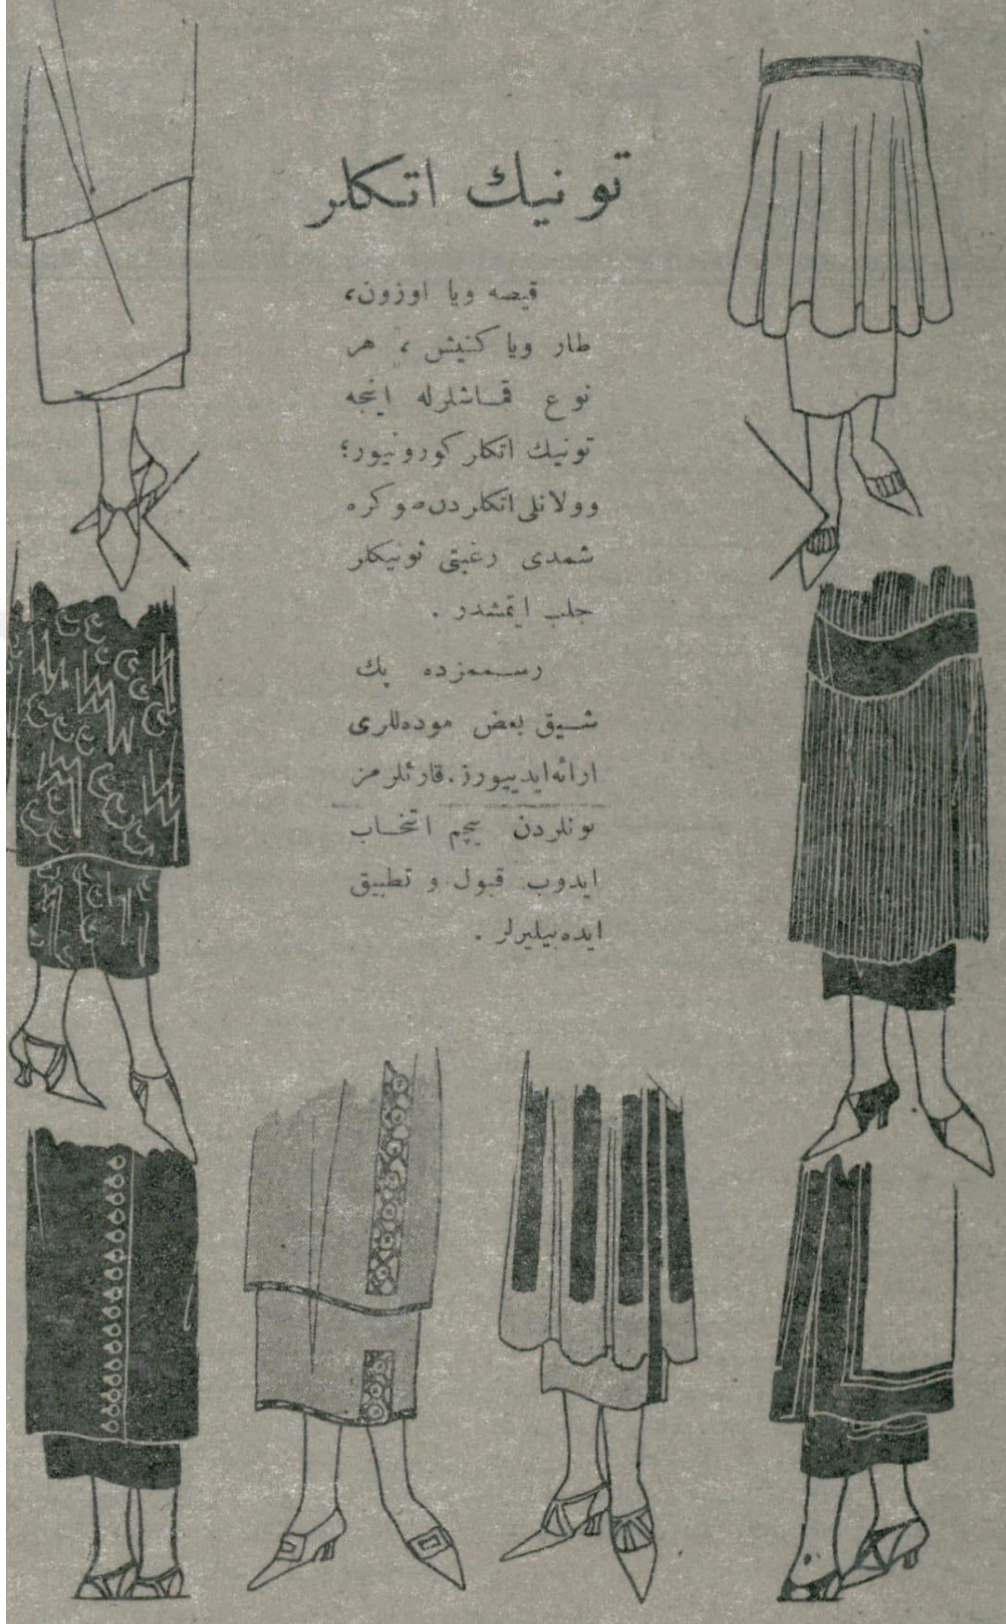 تونيك اتكلر
قيصه ويا اوزون،
طار ويا كنيش ، هر
نوع قماشلرله اينجه
تونيك اتكلر كورونيور؛
وولانلى اتكلردن صوكره
شمدى رغبتى تونيكلر
جلب ايتمشدر .
رسممزده پك
شيق بعض موده‌للرى
ارائه ايدييورز . قارئلرمز
بونلردن بيچم انتخاب
ايدوب قبول و تطبيق
ايده‌بيليرلر .